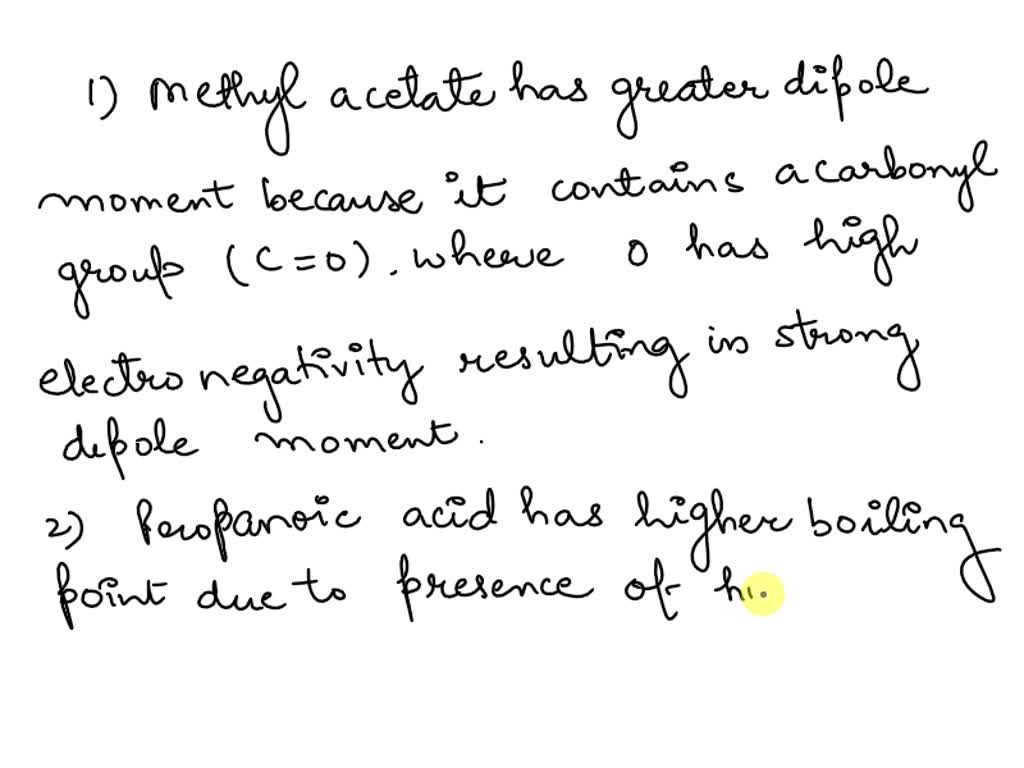 1) Methyl acetate has greater dipole
moment because it contains a carbonyl
group (C=O). where O has high
electro negativity resulting in strong
dipole moment.
2) Propanoic acid has higher boiling
point due to presence of